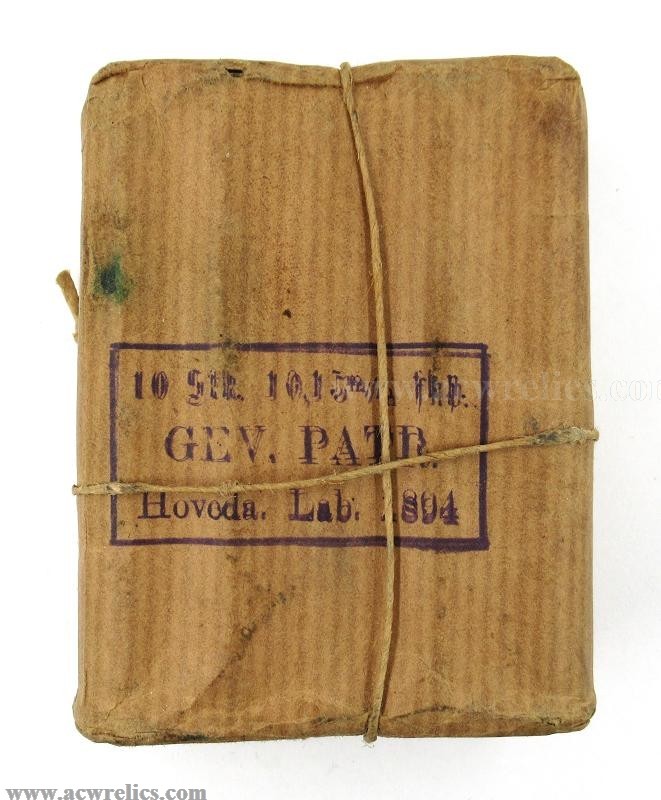 10 Stk. 10,15 m/m skp.
GEV. PATR.
Hoveda. Lab. 1894
www.acwrelics.com